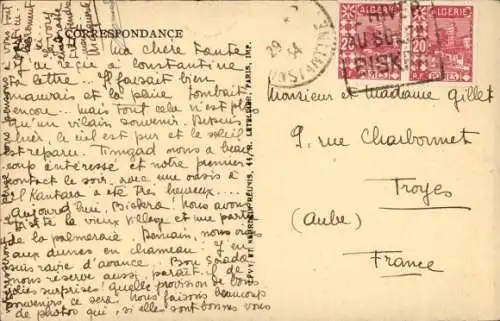 CORRESPONDANCE
Ma chère tante
à Constantine
lettre... Il faisait bien
mauvais et la pluie tombait
encore... mais tout cela n'est plus
qu'un vilain souvenir. Depuis
hier, le ciel est pur et le soleil
est reparu. Timgad nous a beau-
coup intéressé et notre premier
contact le soir, avec une oasis à
El Kantara a été très heureux...
Aujourd'hui, Biskra! Nous avons
vu le vieux village et une partie
de la palmeraie. Demain, nous
aux dunes en chameau! J'en
suis d'avance. Bou Saada
nous réserve aussi, paraît-il de
jolies surprises! quelle provision de bons
souvenirs, ce sera. Nous faisons beaucoup
de photos qui, si elles sont bonnes vous
LÉVY ET NEURDEIN RÉUNIS, 44, R. LETELLIER, PARIS, IMP.
ALGERIE
20
R F
ALGERIE
20
R F
AU
BISK
29
54
Monsieur et Madame Gillet
9, rue Charbonnet
Troyes
(Aube)
France